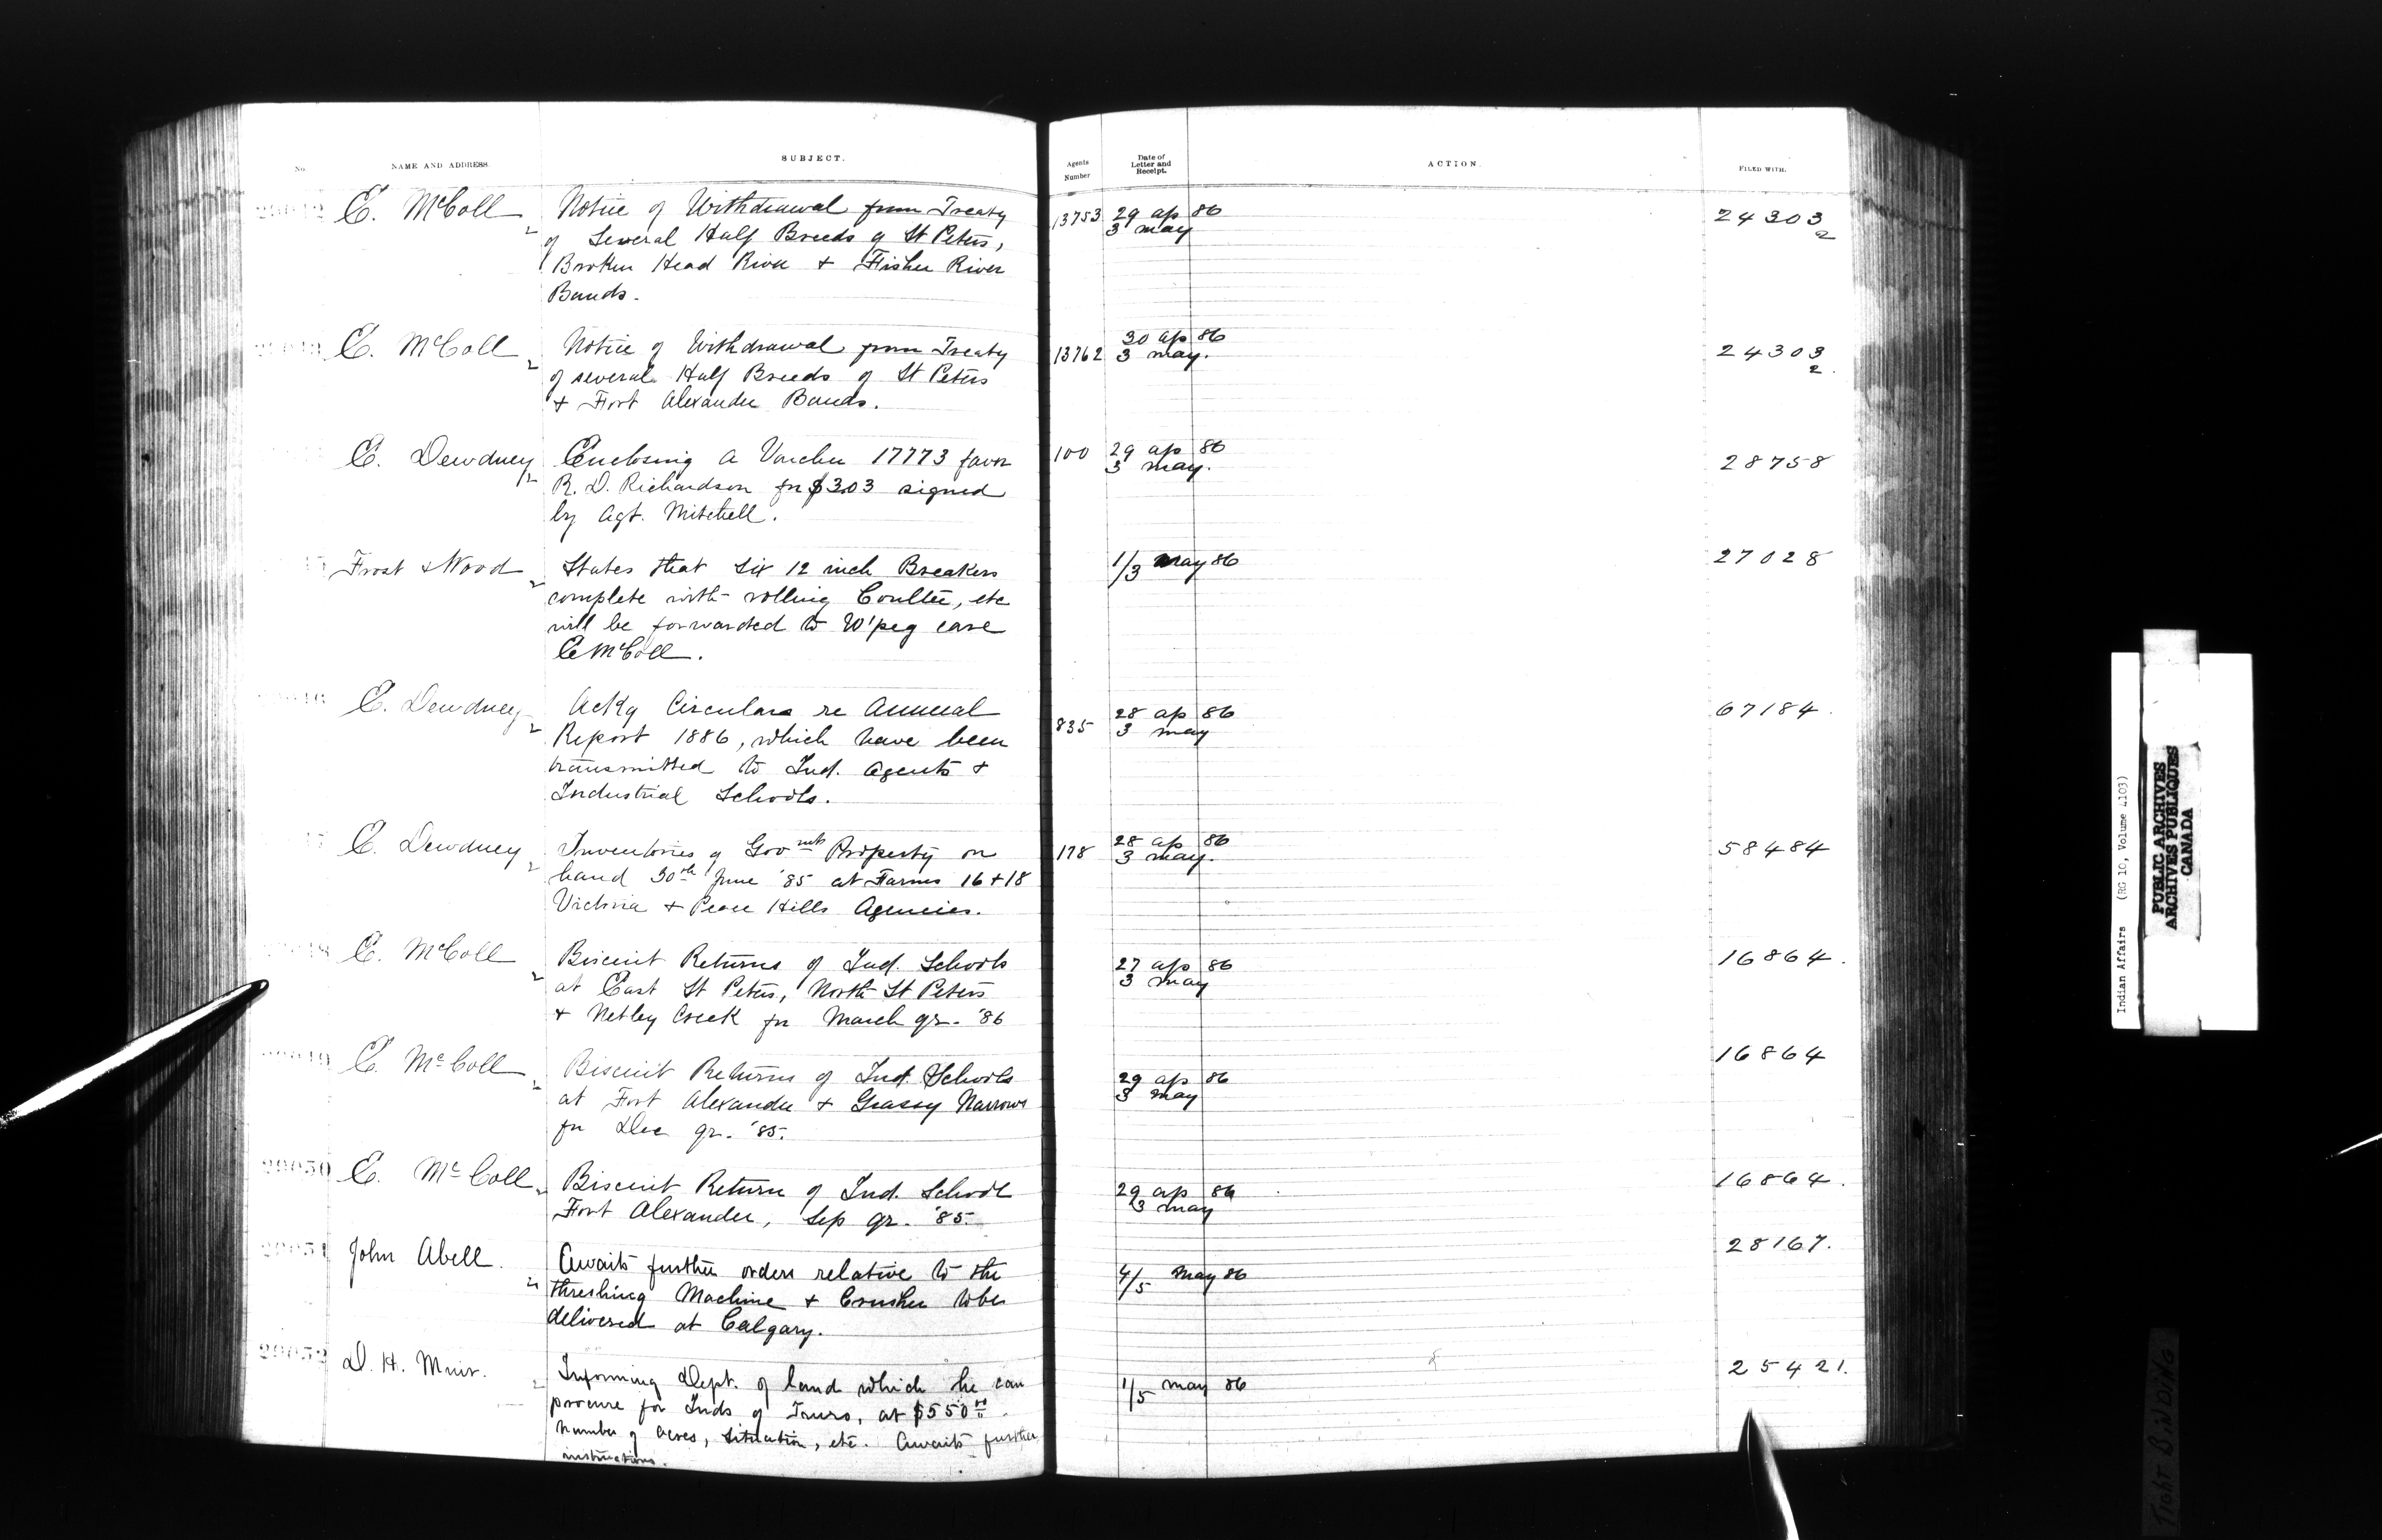 No. NAME AND ADDRESS. SUBJECT. Agents Number Date of Letter and Receipt. ACTION. FILED WITH.
E. McColl Notice of Withdrawal from Treaty 13753 29 ap 86 24303
of Several Half Breeds of St Peters, 3 may 2
Broken Head River + Fisher River
Bands.
E. McColl Notice of Withdrawal from Treaty 13762 30 ap 86 24303
of several Half Breeds of St Peters 3 may. 2.
+ Fort Alexander Bands.
E. Dewdney Enclosing a Voucher 17773 favor 100 29 ap 86 28758
R. D. Richardson for $3.03 signed 3 may.
by Agt. Mitchell.
Frost & Wood States that six 12 inch Breakers 1/3 May 86 27028
complete with rolling Coulter, etc
will be forwarded to W'peg care
E McColl.
E. Dewdney Ackg Circulars re Annual 835 28 ap 86 67184.
Report 1886, which have been 3 may
transmitted to Ind. Agents +
Industrial Schools.
E. Dewdney Inventories of Govmts Property on 178 28 ap 86 58484
hand 30th June '85 at Farms 16 + 18 3 may.
Victoria + Peace Hills Agencies.
E. McColl Biscuit Returns of Ind. Schools 27 ap 86 16864.
at East St Peters, North St Peters 3 may
+ Netley Creek for March qr. '86
E. McColl Biscuit Returns of Ind. Schools 29 ap 86 16864
at Fort Alexander + Grassy Narrows 3 may
for Dec qr. '85.
29050 E. McColl Biscuit Return of Ind. School 29 ap 86 16864.
Fort Alexander, Sep qr. '85. 3 may
29051 John Abell. Awaits further orders relative to the 4/5 May 86 28167.
threshing Machine + Crusher to be
delivered at Calgary.
29052 D. H. Muir. Informing Dept. of land which he can 1/5 may 86 25421.
procure for Inds of Truro, at $550 00/.
number of acres, situation, etc. Awaits further
instructions.
Indian Affairs (RG 10, Volume 4103)
PUBLIC ARCHIVES
ARCHIVES PUBLIQUES
CANADA
TIGHT BINDING